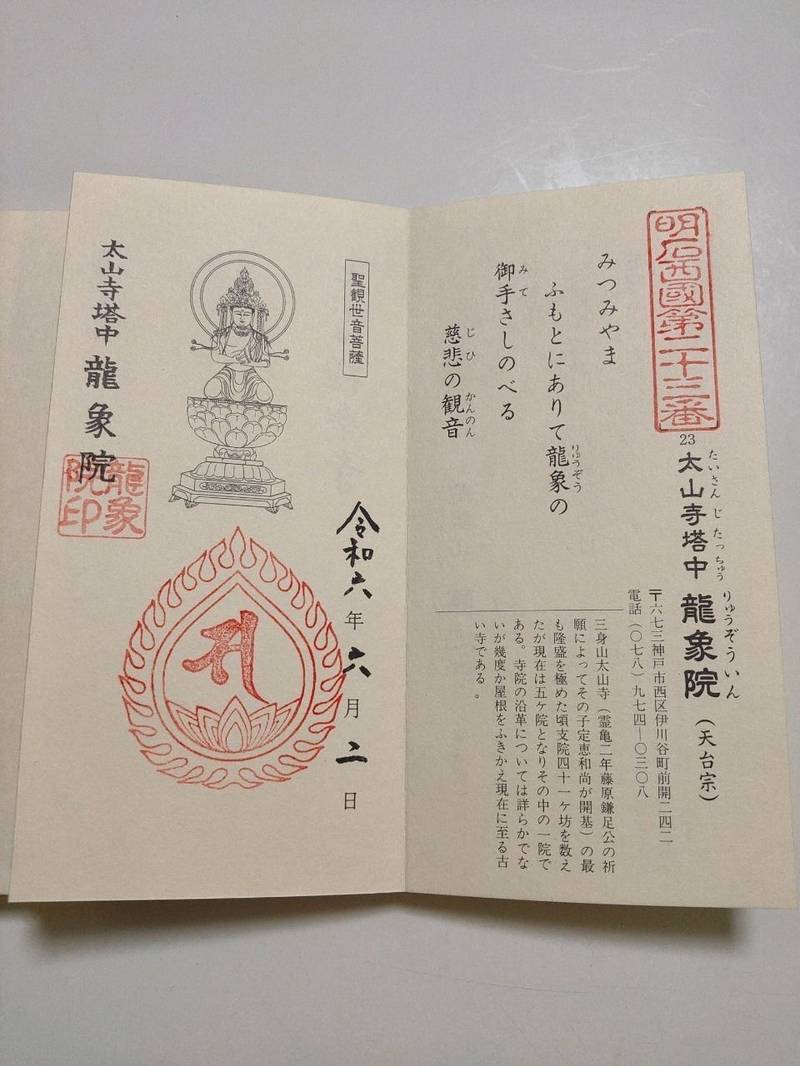 明石西國第二十三番
23
太山寺塔中 龍象院（天台宗）
たいさんじたっちゅう りゅうぞういん
〒六七三神戸市西区伊川谷町前開二四二
電話（〇七八）九七四―〇三〇八
みつみやま
ふもとにありて龍象の
りゅうぞう
御手さしのべる
みて
慈悲の観音
じひ かんのん
三身山太山寺（霊亀二年藤原鎌足公の祈
願によってその子定恵和尚が開基）の最
も隆盛を極めた頃支院四十一ヶ坊を数え
たが現在は五ヶ院となりその中の一院で
ある。寺院の沿革については詳らかでな
いが幾度か屋根をふきかえ現在に至る古
い寺である。
聖観世音菩薩
令和六年六月二日
太山寺塔中 龍象院
龍象
院印